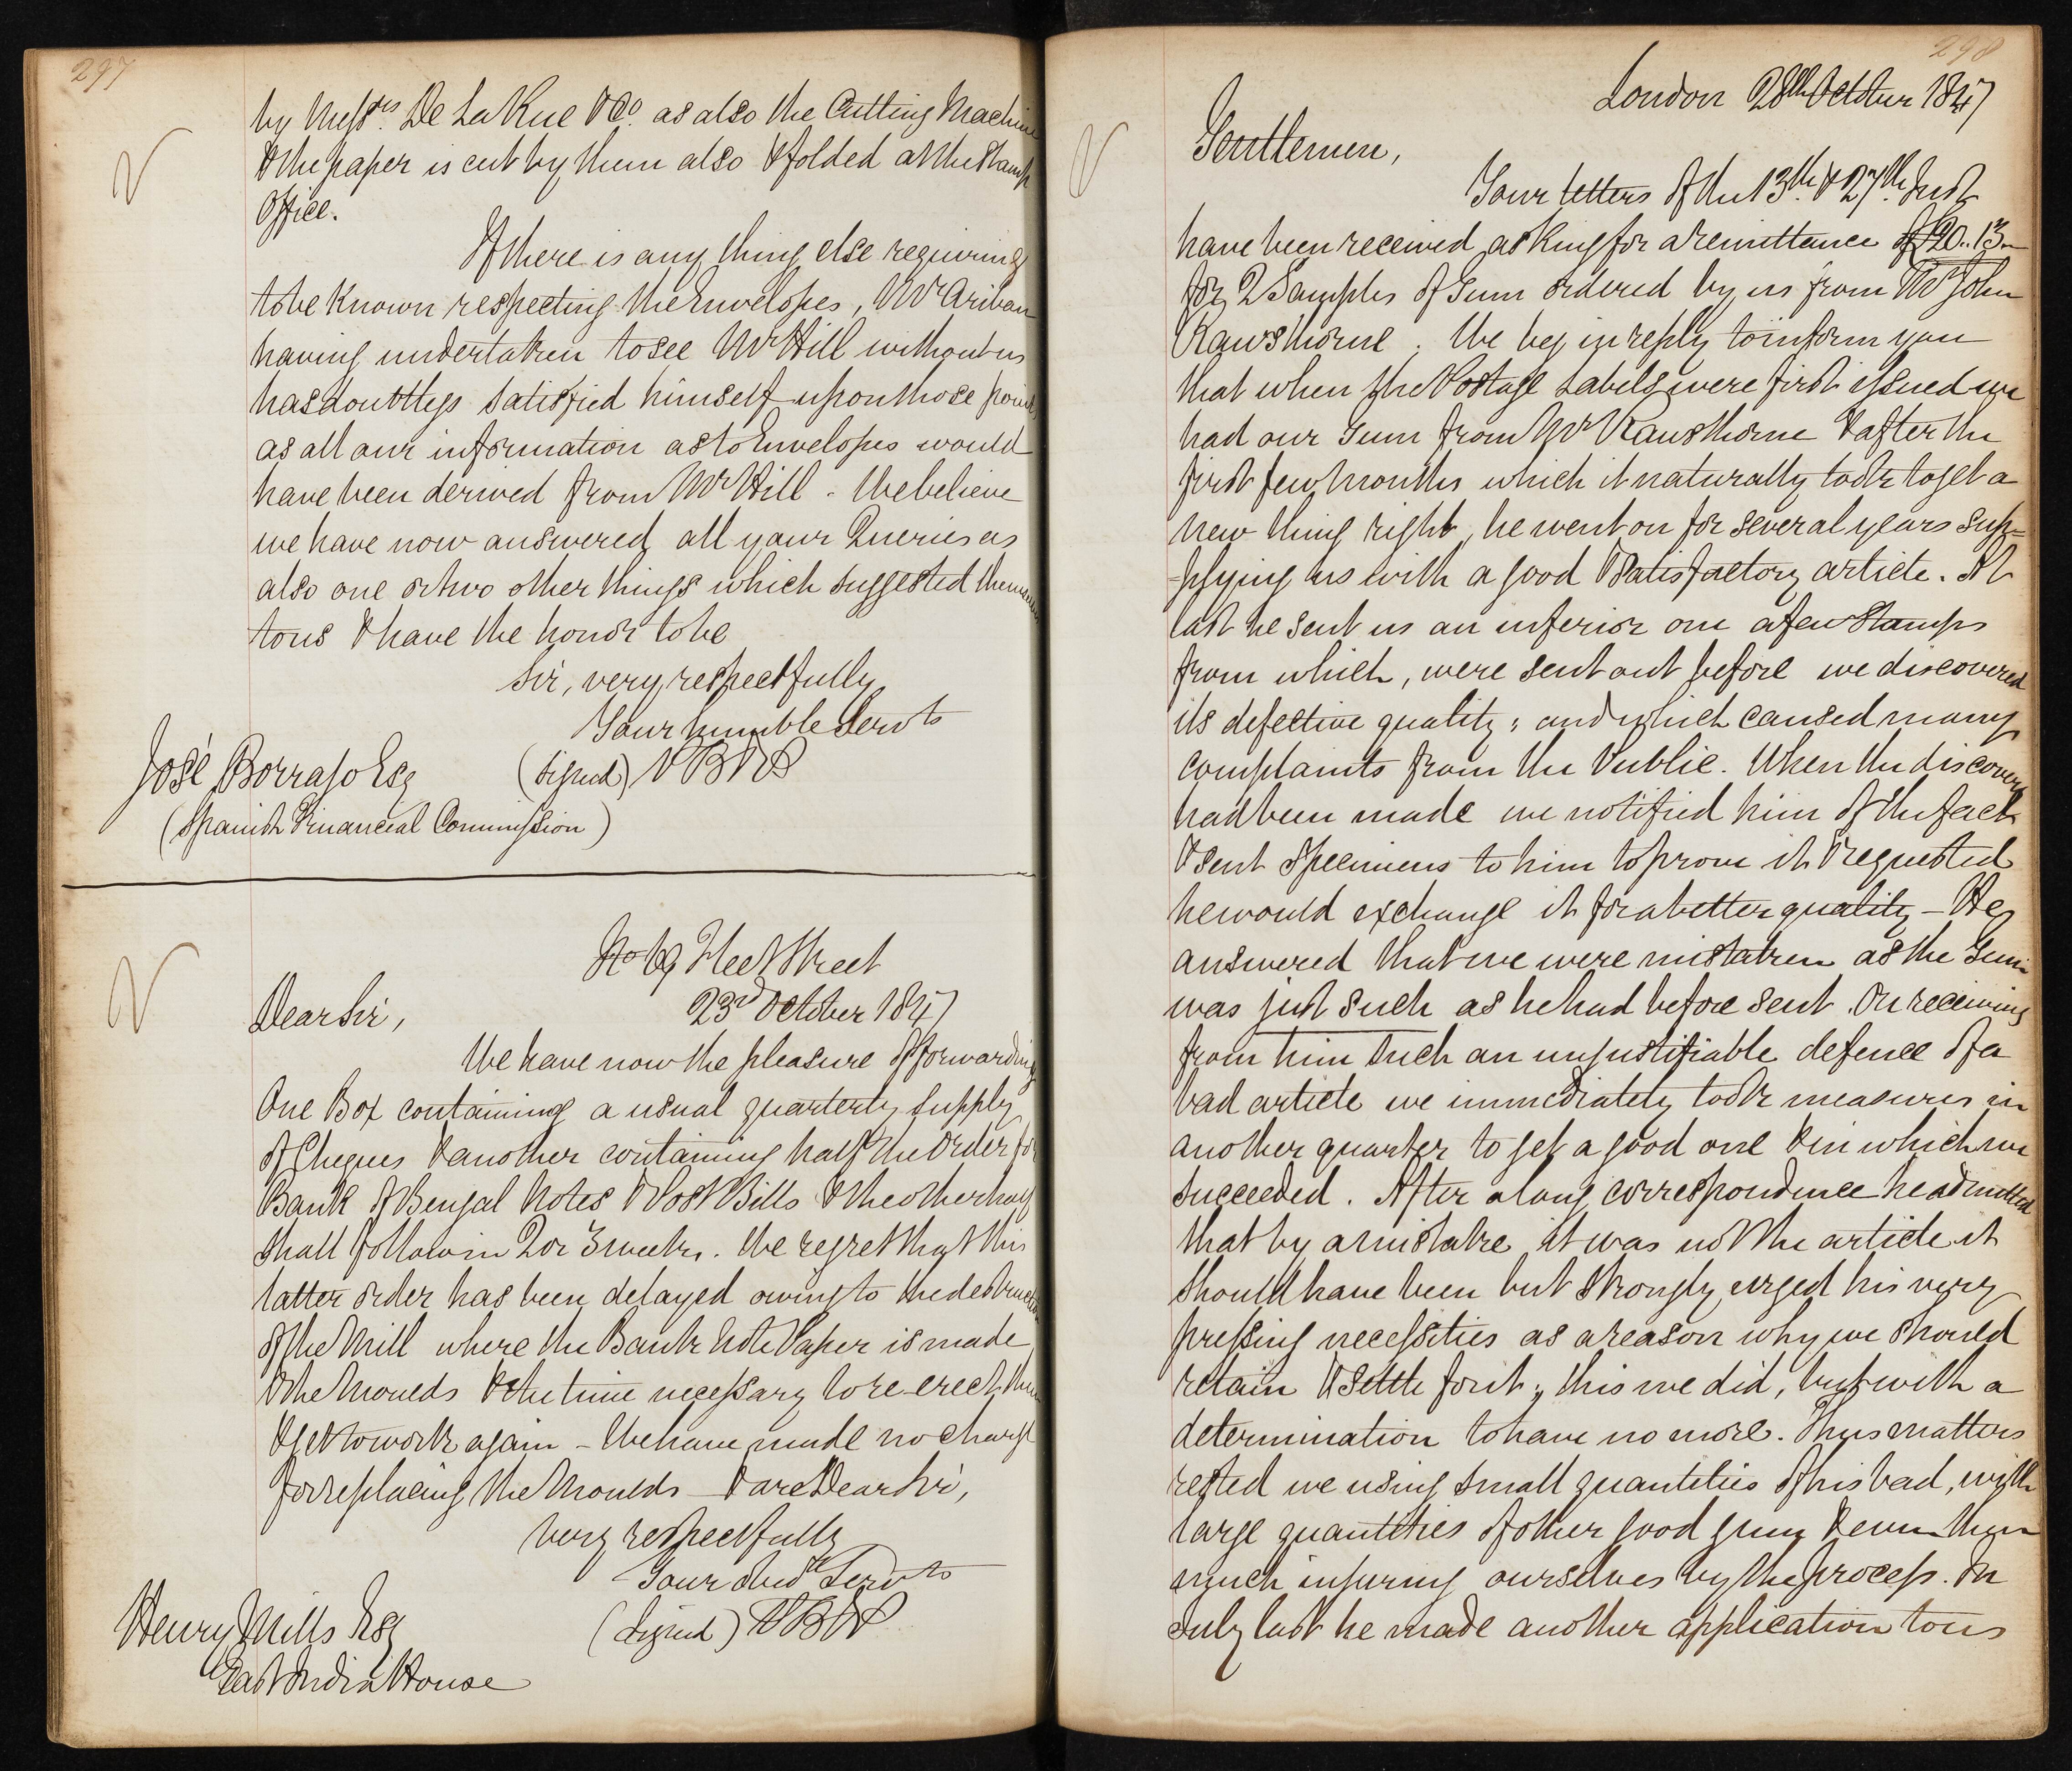 297
by Messrs. De La Rue & Co. as also the Cutting Machine
& the paper is cut by them also & folded at the Stamp
Office.
If there is any thing else requiring
to be known respecting the Envelopes, Mr Aribau
having undertaken to see Mr Hill without us
has doubtless satisfied himself upon those points
as all our information as to Envelopes would
have been derived from Mr Hill. We believe
we have now answered all your Queries as
also one or two other things which suggested themselves
to us & have the honor to be
Sir, very respectfully
Your humble Servts
José Borrajo Esq (signed) PB&P
(Spanish Financial Commission)
No 69 Fleet Street
23rd October 1847
Dear Sir,
We have now the pleasure of forwarding
One Box containing a usual quarterly supply
of Cheques & another containing half the order for
Bank of Bengal Notes & Post Bills & the other half
shall follow in 2 or 3 weeks. We regret that this
latter order has been delayed owing to the destruction
of the Mill where the Bank Note Paper is made
& the Moulds & the time necessary to re-erect them
& get to work again – We have made no charge
for replacing the Moulds – & are Dear Sir,
very respectfully
Your obedt Servts
(signed) PB&P
Henry Mills Esq
East India House
298
London 28th October 1847
Gentlemen,
Your letters of the 13th. & 27th. Inst
have been received asking for a remittance of £20..13..
for 2 Samples of Gum ordered by us from Mr John
Rawsthorne. We beg in reply to inform you
that when the Postage Labels were first issued we
had our Gum from Mr Rawsthorne & after the
first few months which it naturally took to get a
new thing right, he went on for several years sup=
=plying us with a good & satisfactory article. At
last he sent us an inferior one a few Stamps
from which, were sent out before we discovered
its defective quality; and which caused many
complaints from the Public. When the discovery
had been made we notified him of the fact
& sent specimens to him to prove it & requested
he would exchange it for a better quality – He
answered that we were mistaken as the Gum
was just such as he had before sent. On receiving
from him such an unjustifiable defence of a
bad article we immediately took measures in
another quarter to get a good one & in which we
succeeded. After a long correspondence he admitted
that by a mistake it was not the article it
should have been but strongly urged his very
pressing necessities as a reason why we should
retain & settle for it; this we did, but with a
determination to have no more. Thus matters
rested we using small quantities of his bad, with
large quantities of other good gum & even then
much injuring ourselves by the process. In
July last he made another application to us